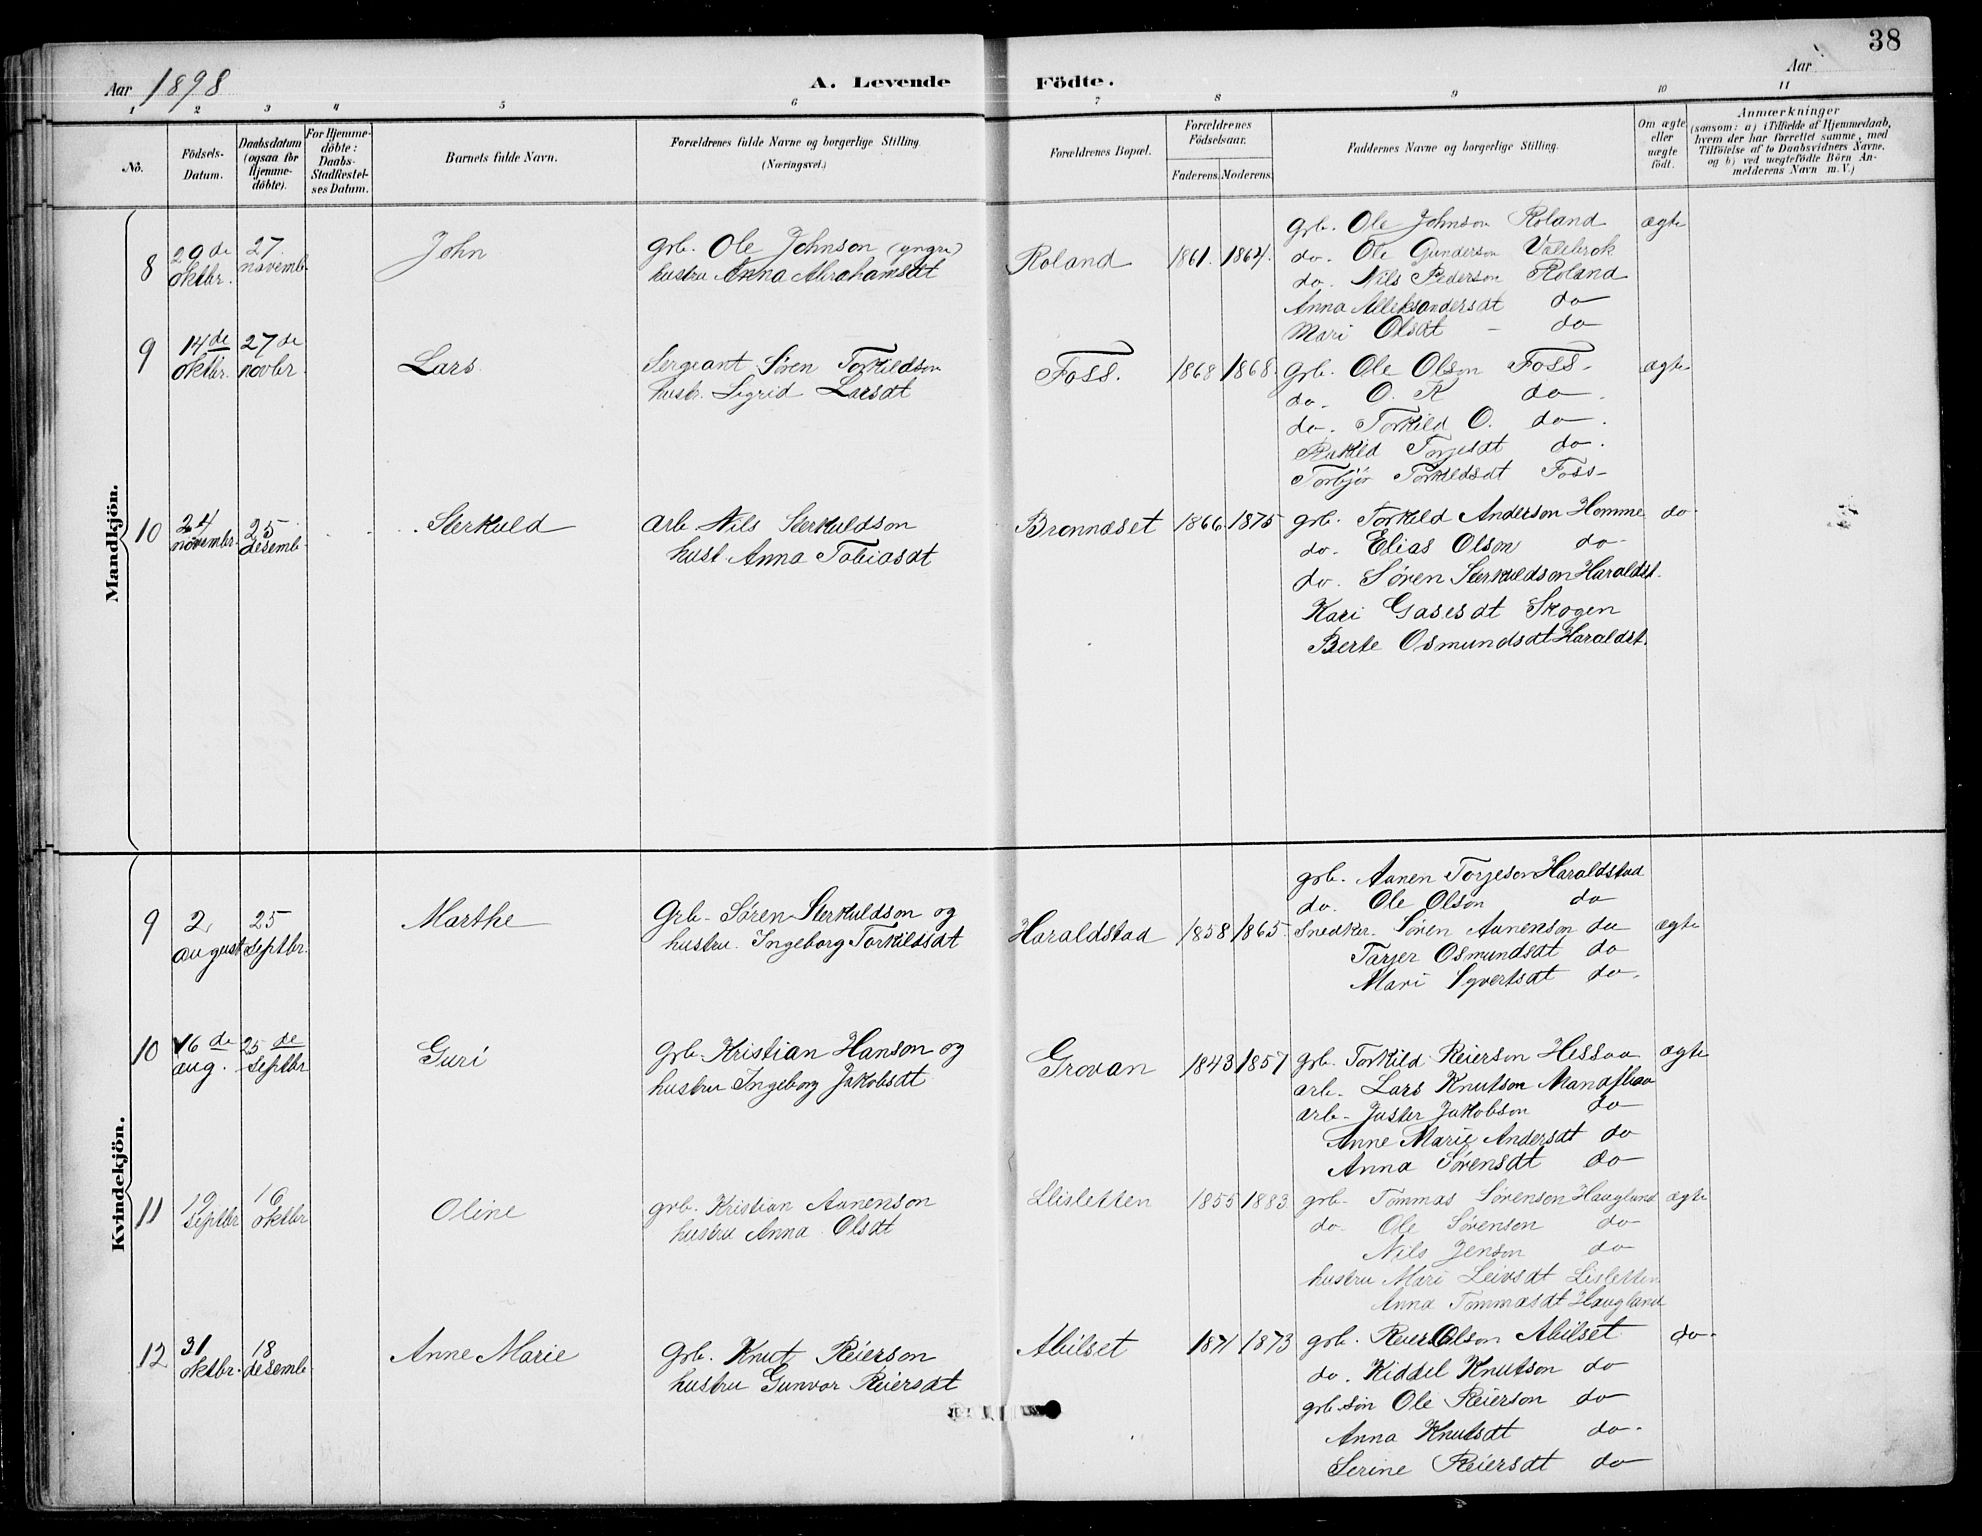 38
Aar 1898 A. Levende Födte. Aar
1 2 3 4 5 6 7 8 9 10 11
No.
Födsels-Datum.
Daabsdatum (ogsaa for Hjemmedöbte).
For Hjemmedöbte: Daabs-Stadfæstelses Datum.
Barnets fulde Navn.
Forældrenes fulde Navne og borgerlige Stilling.
(Næringsvei.)
Forældrenes Bopæl.
Forældrenes Födselsaar.
Faderens. Moderens.
Faddernes Navne og borgerlige Stilling.
Om ægte eller uægte födt.
Anmærkninger
(saasom: a) i Tilfælde af Hjemmedaab,
hvem der har forrettet samme, med
Tilföielse af to Daabsvidners Navne,
og b) ved uægtefödte Börn An-
melderens Navn m. V.)
Mandkjön.
8 29de oktbr. 27 novemb. John
grb. Ole Johnson (yngre)
hustru Anna Abrahamsdt
Roland 1861. 1864.
grb. Ole Johnson Roland ægte
do. Ole Gunderson Valebrok
do. Nils Pederson Roland
Anna Alleksandersdt do
Mari Olsdt - do
9 14de oktbr. 27de novbr. Lars
Sergeant Søren Torkildson
hustr. Sigrid Larsdt
Foss. 1868 1868.
grb. Ole Olson Foss. ægte
do. O. K do.
do. Torkild O. do.
Rakild Torjesdt do.
Torbjør Torkildsdt Foss
10 24 novembr. 25 desemb. Sterkuld
arb Nils Sterkuldson
hust. Anna Tobiasdt
Bronnæset 1866 1875
grb. Torkild Anderson Homme do
do. Elias Olson do
do. Søren Sterkuldson Haraldst.
Kari Gasesdt Skogen
Berte Osmundsdt Haraldst.
Kvindekjön.
9 2 august 25 septbr. Marthe
Grb. Søren Sterkuldson og
hustru. Ingeborg Torkildsdt
Haraldstad 1858 1865.
grb. Aanen Torjeson Haraldstad
do. Ole Olson do
Snedkr. Søren Aanenson do ægte
Tarjer Osmundsdt do
Mari Syvertsdt do.
10 16de aug. 25de septbr Guri
grb. Kristian Hanson og
hustru Ingeborg Jakobsdt
Grovan 1843 1857
grb. Torkild Reierson Hessaa ægte
arb. Lars Knutson Mandflaa
arb. Juster Jakobson do
Anne Marie Andersdt do
Anna Sørensdt do
11 19 septbr 16 oktbr Oline
grb. Kristian Aanenson
hustru Anna Olsdt
Lisletten 1855 1883
grb. Tommas Sørenson Haugland ægte
do. Ole Sørenson do
Nils Jenson do
hustru Mari Leivsdt Lisletten
Anna Tommasdt Haugland
12 31 oktbr. 18 desemb Anne Marie
Grb. Knut Reierson
hustru Gunvor Reiersdt
Abilset 1871 1873
grb. Reier Olson Abilset do.
do. Kiddel Knutson do
grb. søn Ole Reierson do
Anna Knutsdt do.
Serine Reiersdt do